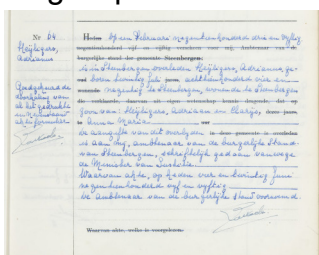 Nº 64
Heijligers,
Adrianna
Goedgekeurd de
doorhaling van
al het gedrukte
in nevenstaand
akte formulier.
Heden vijf en Februari negentienhonderd drie en vijftig
negentienhonderd vijf en vijftig verscheen voor mij, Ambtenaar van de
burgerlijke stand der gemeente Steenbergen:
is in Steenbergen overleden Heijligers, Adrianna, ge-
boren twintig juli achttienhonderd vier en
negentig te Steenbergen, wonende te Steenbergen
die verklaarde, daarvan uit eigen wetenschap kennis dragende, dat op
zoon van: Heijligers, Adriaan en
Anna Maria
de aangifte van dit overlijden in deze gemeente is overleden
is aan mij, ambtenaar van de burgerlijke stand
van Steenbergen, schriftelijk gedaan vanwege
de Minister van Justitie.
Waarvan akte, op heden vier en twintig Juni
negentienhonderd vijf en vijftig
De ambtenaar van de burgerlijke stand voornoemd.
Waarvan akte, welke is voorgelezen.